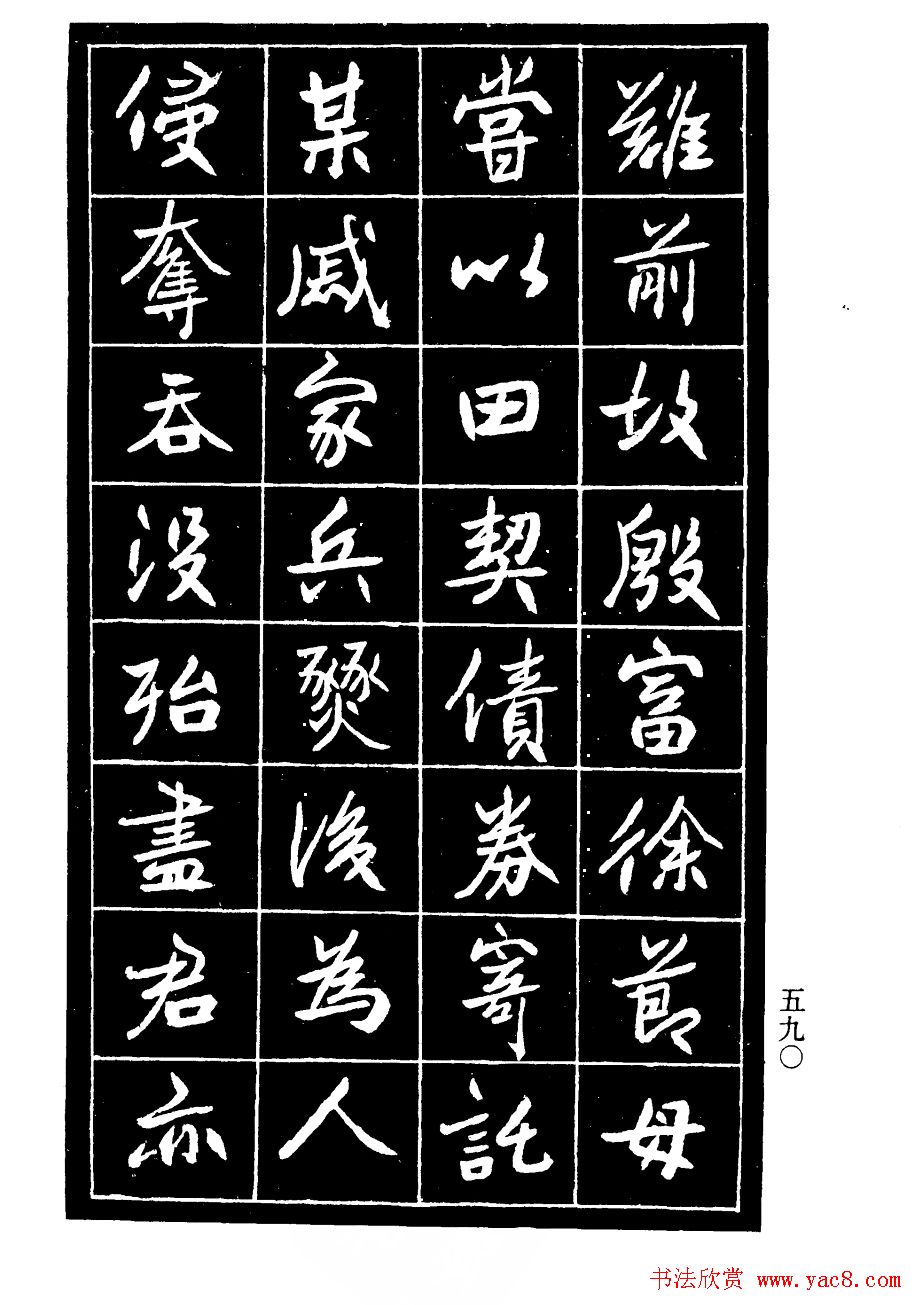 難前故殷富徐節母
嘗以田契債券寄託
某戚家兵燹後為人
侵奪吞没殆盡君亦
五九〇
书法欣赏 www.yac8.com